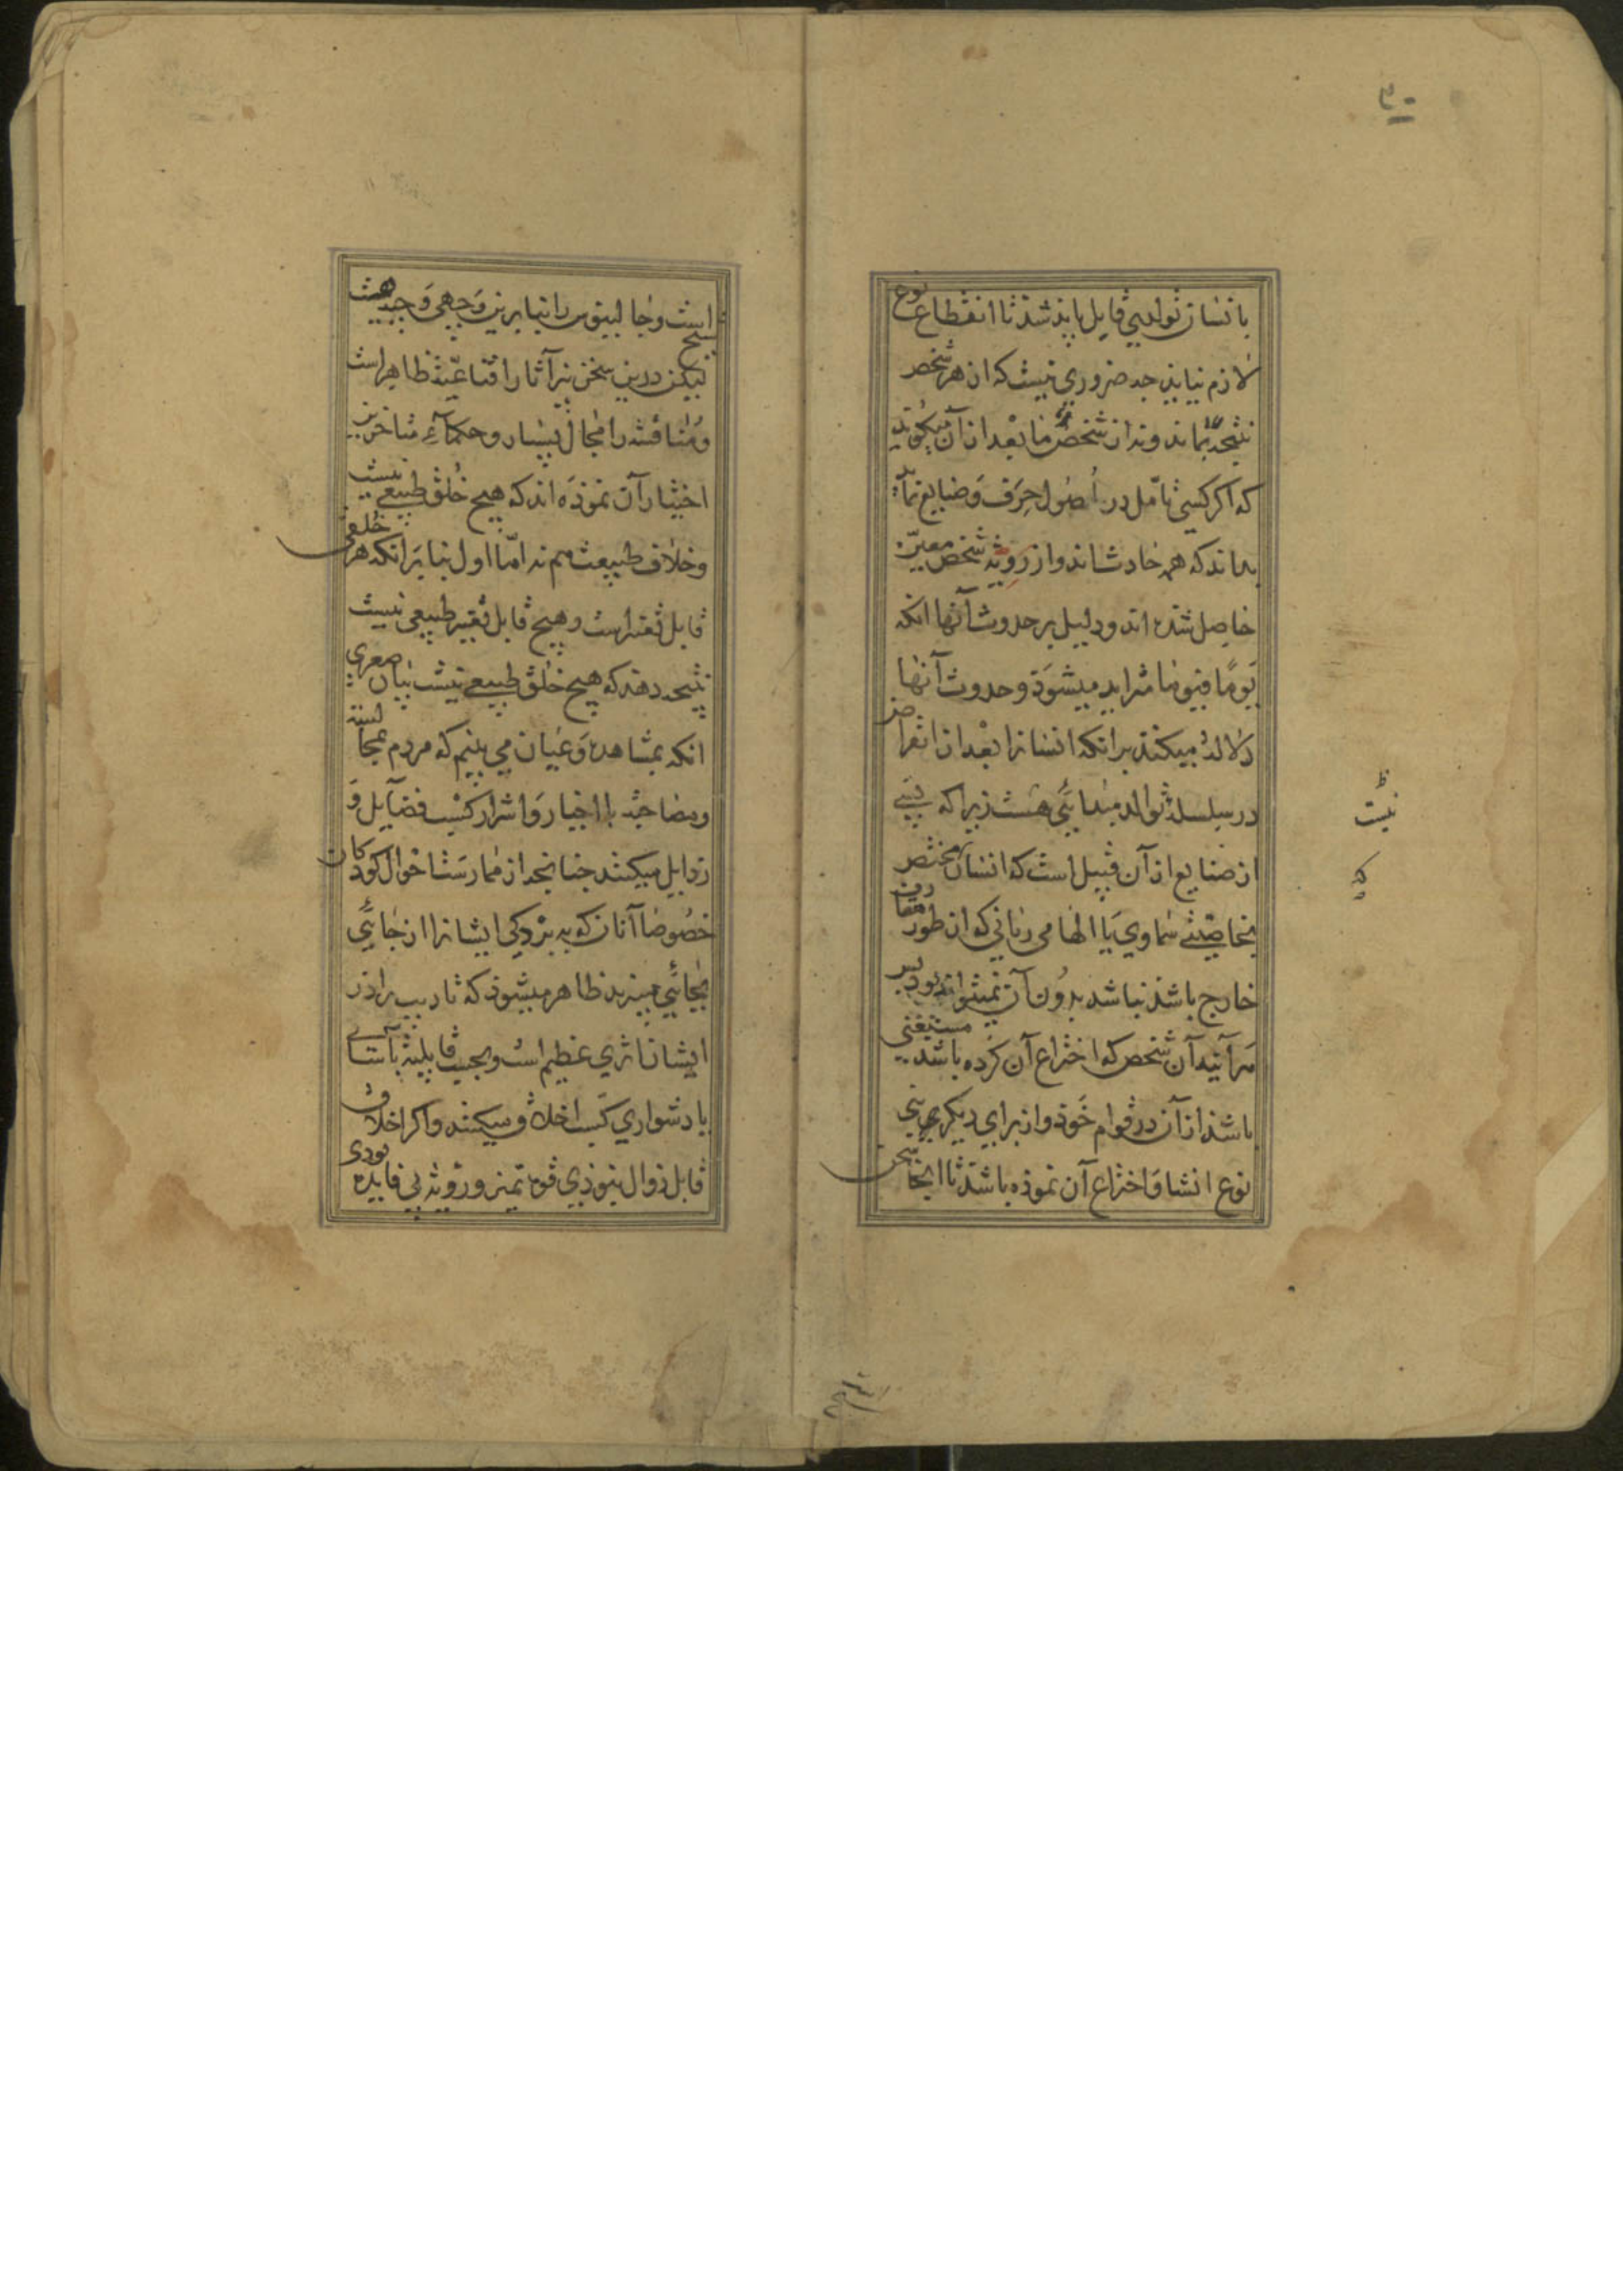 بانسان توالدی قایل باید شد تا انقطاع نوع
لازم نیاید چه ضروری نیست که از هر شخص
نتیجه بماند و نه از شخص ما بعد از آن میگوید
که اگر کسی تأمل در اصول حرف و صنایع نماید
بداند که همه حادث اند و از رویه شخص معین
حاصل شده اند و دلیل بر حدوث آنها آنکه
یوما فیوما متزاید میشود و حدوث آنها
دلاله میکند بر آنکه انسانرا بعد از انقراض
در سلسله توالد مبدایی هست زیرا که بسی
از صنایع از آن قبیل است که انسان مختص
بخاصیتی سماوی یا الهامی ربانی که از طور متعارف
خارج باشد نباشد بدون آن نمیتواند بود پس
هرآینه آن شخص که اختراع آن کرده باشد مستغنی
باشد از آن در قوام خود و از برای دیگر بنی
نوع انشا و اختراع آن نموده باشد تا اینجا سخن
نیست
که
است و جالینوس را بنابرین وجهی وجیه هست
لیکن درین سخن نیز آثار اقناعیه ظاهر است
و مناقشه را مجال بسیار و حکماء متاخرین
اختیار آن نموده اند که هیچ خلق طبیعی نیست
و خلاف طبیعت هم نه اما اول بنابر آنکه هر خلقی
قابل تغیر است و هیچ قابل تغییر طبیعی نیست
نتیجه دهد که هیچ خلق طبیعی نیست بیان صغری
آنکه بمشاهده و عیان می بینیم که مردم بمجالسة
و مصاحبة با اخیار و اشرار کسب فضایل و
رذایل میکنند چنانچه از ممارست احوال کودکان
خصوصا آنان که به بردگی ایشانرا از جائی
بجائی میبرند ظاهر میشود که تادیب را در
ایشان اثری عظیم است و بحسب قابلیة بآسانی
یا دشواری کسب اخلاق میکنند و اگر اخلاق
قابل زوال نبودی قوة تمیز و رویه بی فایده بودی